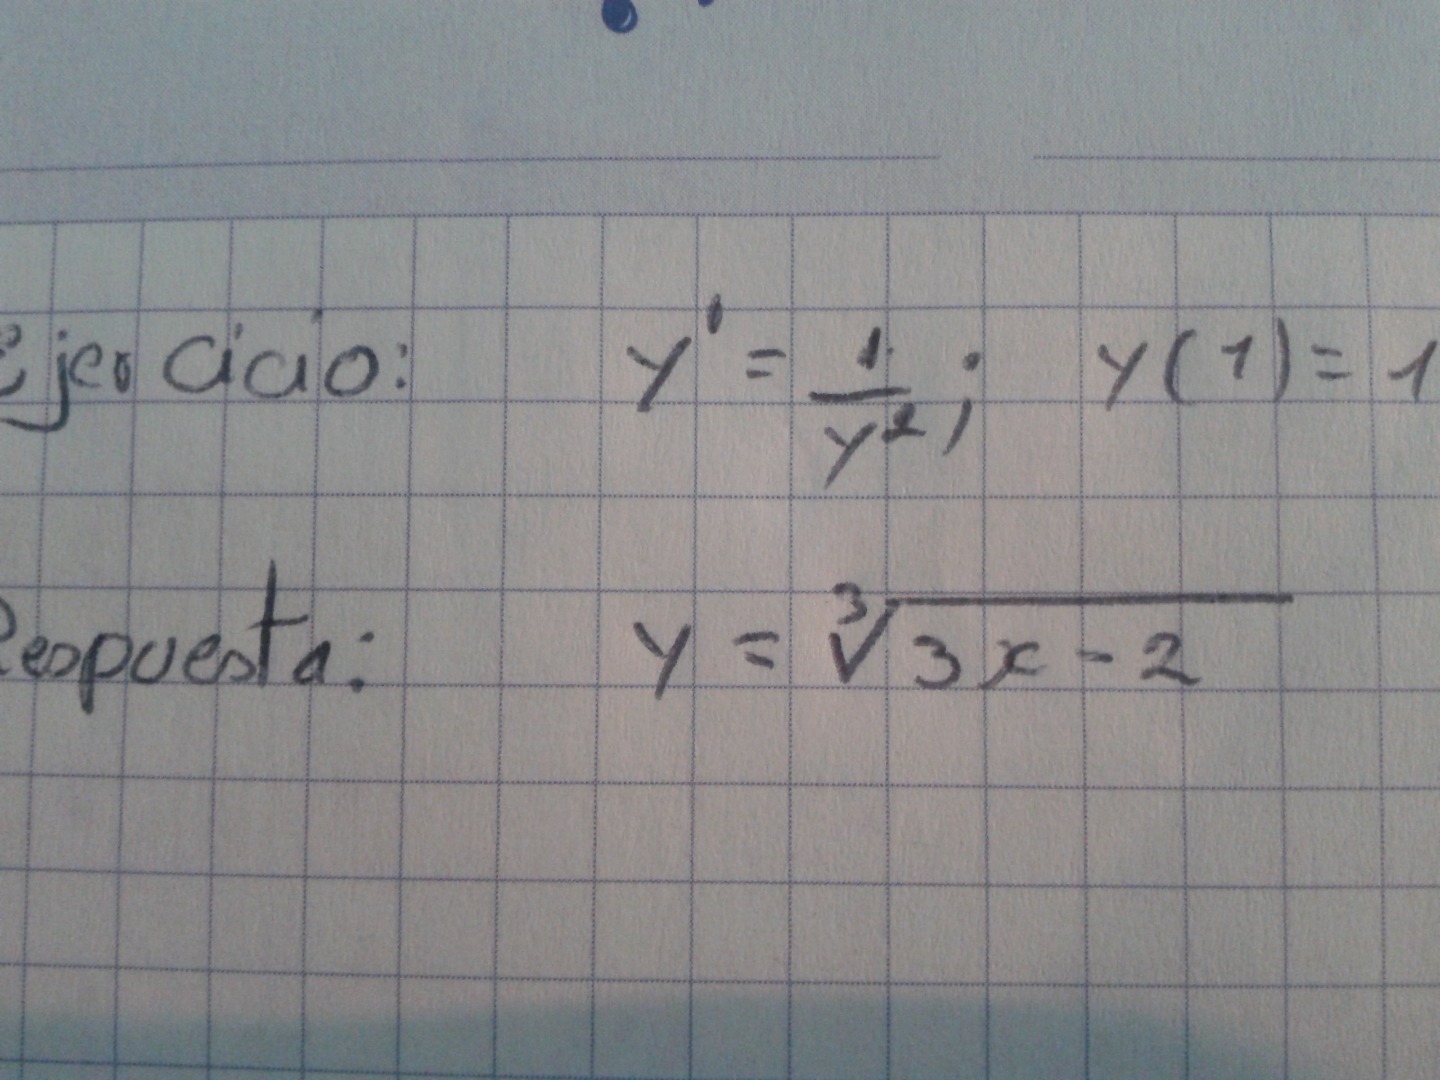 Ejercicio: y' = 1/y²; y(1) = 1
Respuesta: y = ∛(3x - 2)